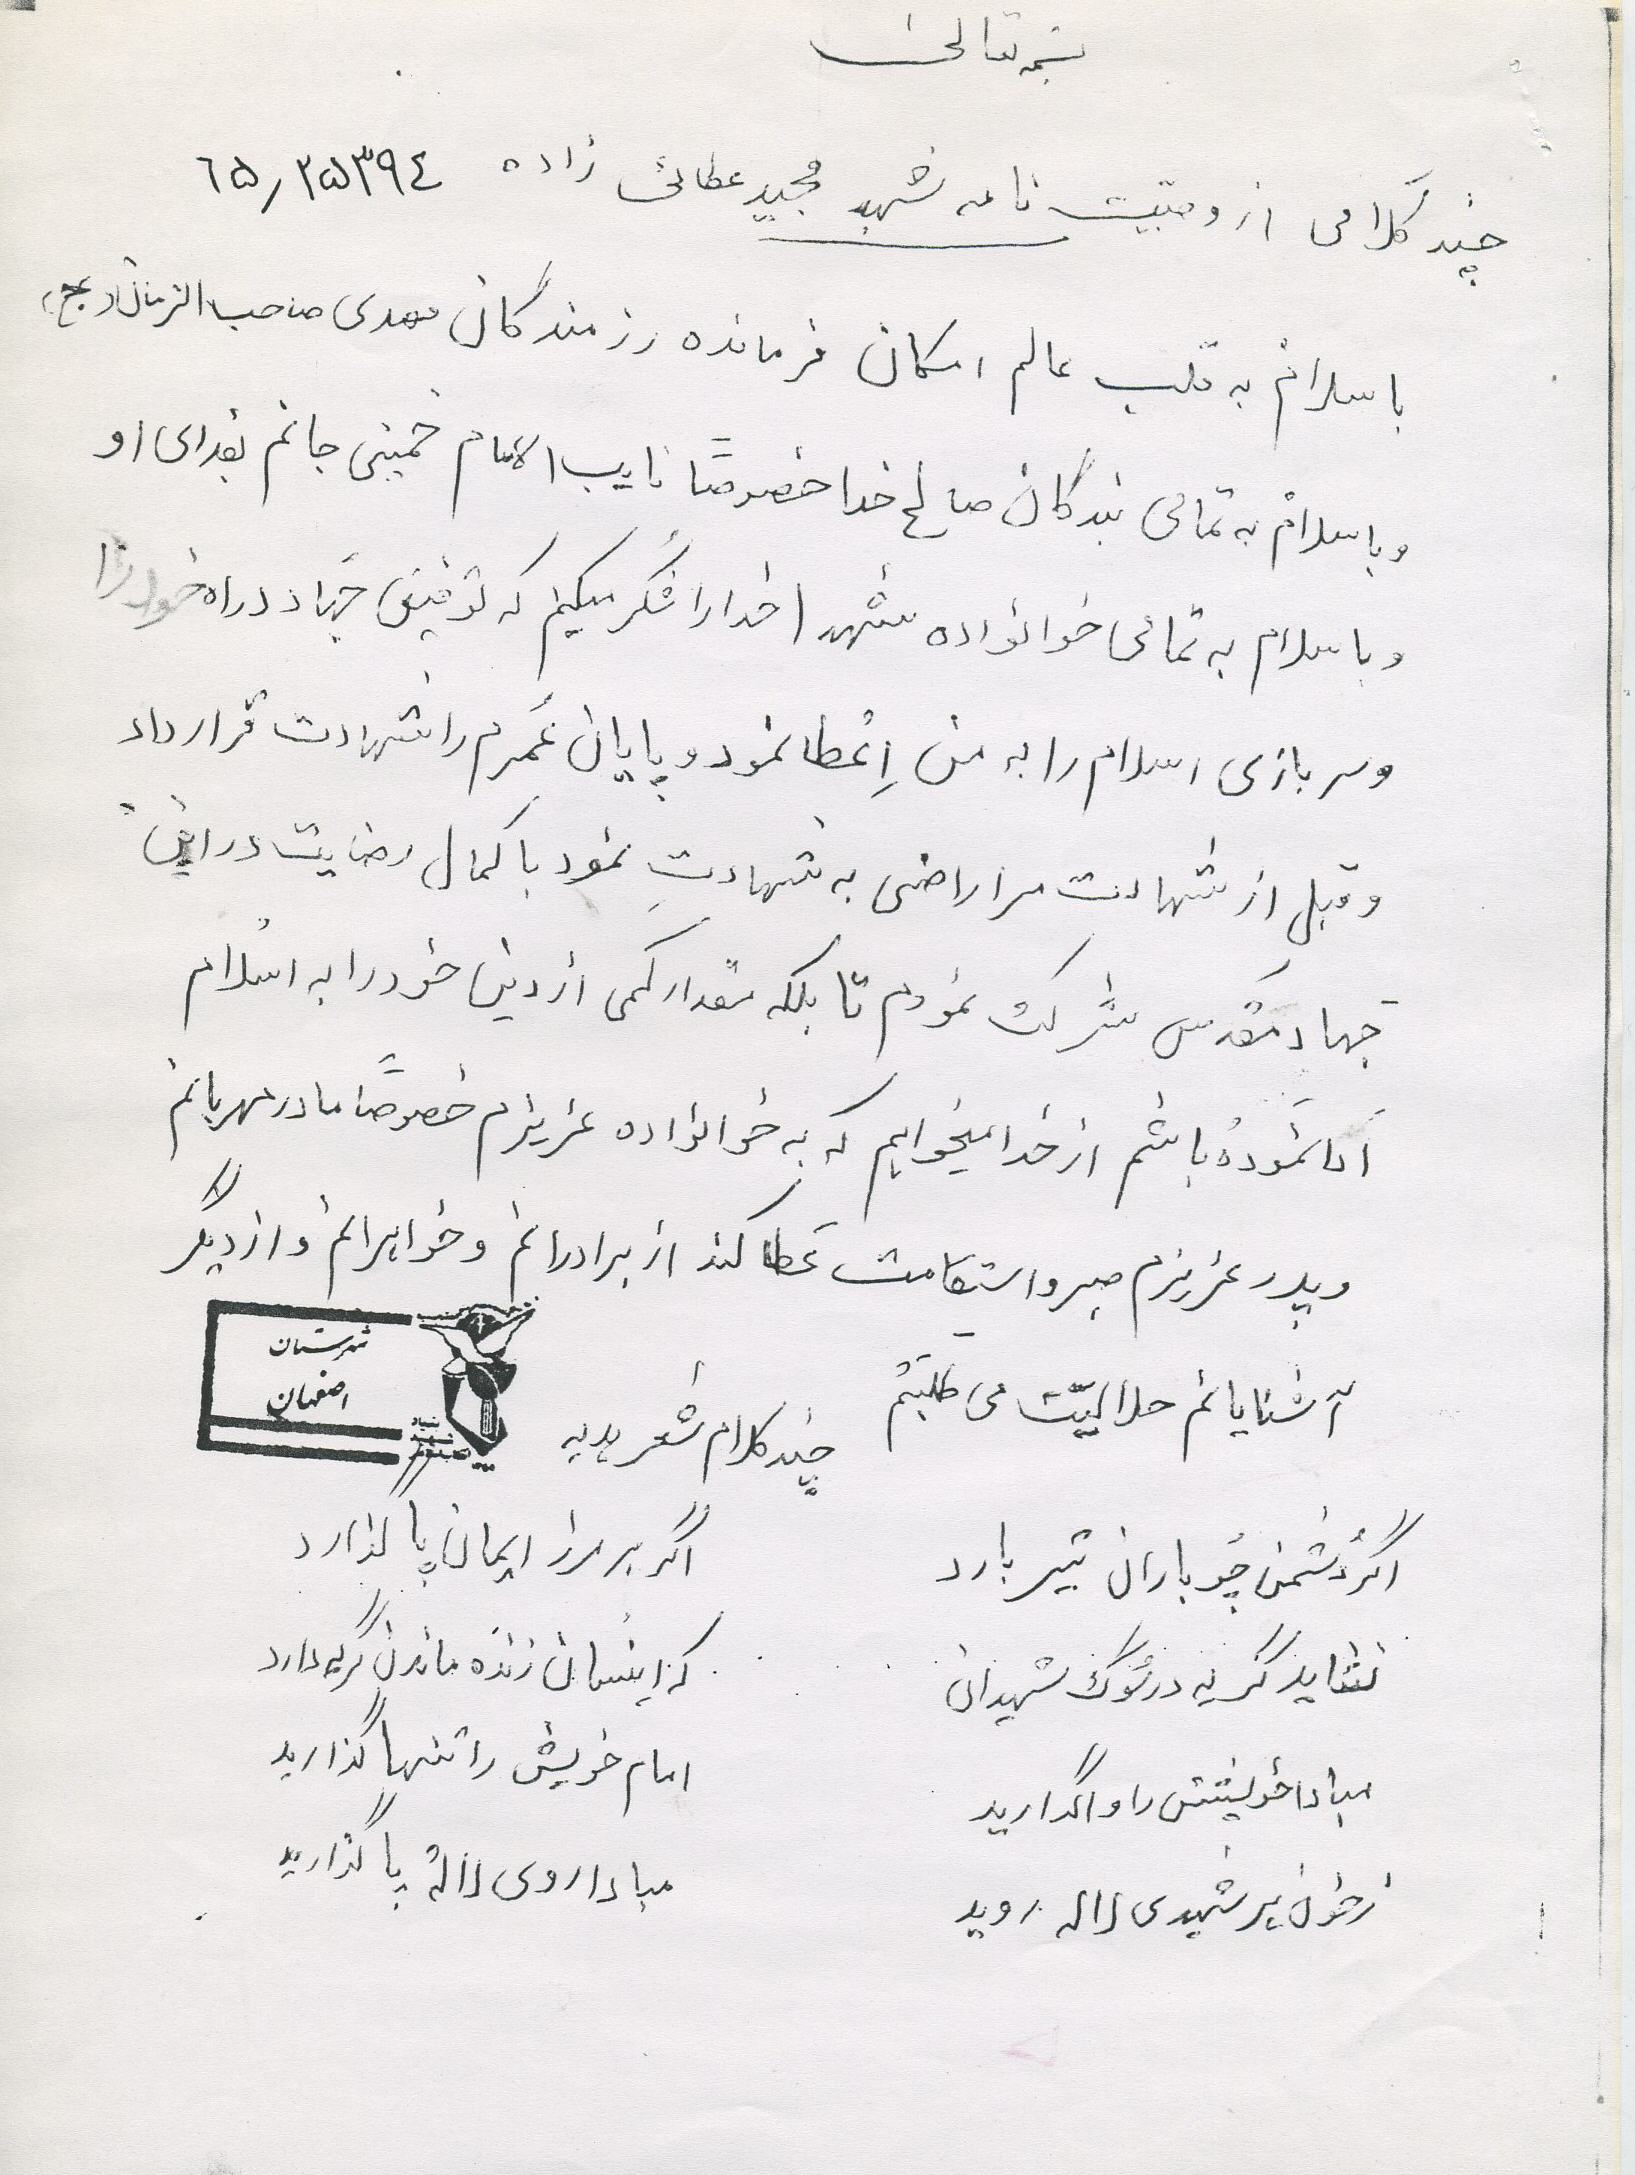 بسمه تعالی
چند کلامی از وصیت نامه شهید مجید عطائی زاده ٦۵٫۲۵۳۹٤
با سلام به قلب عالم امکان فرمانده رزمندگان مهدی صاحب الزمان (عج)
و با سلام به تمامی بندگان صالح خدا خصوصاً نایب الامام خمینی جانم بفدای او
و با سلام به تمامی خوانواده شهدا خدا را شکر میکنم که توفیق جهاد در راه خود را
و سربازی اسلام را به من اِعْطا نمود و پایان عُمرم را شهادت قرار داد
و قبل از شهادت مرا راضی به شهادتِ نمود با کمال رضایت در این
جهاد مقدس شرکت نمودم تا بلکه مقدار کمی از دین خود را به اسلام
اَدا نموده باشم از خدا میخواهم که به خوانواده عزیزم خصوصاً مادر مهربانم
و پدر عزیزم صبر و استقامت عَطا کند از برادرانم و خواهرانم و از دیگر
آشنایانم حلالیّت می طلبم
چند کلام شعر هدیه
شهرستان
اصفهان
بنیاد
شهید
اگر دُشمن چُو باران تیر بارد اگر بر مرز ایمان پا گذارد
نشاید گریه در سُوگ شهیدان که اینسان زنده ماندن گریه دارد
مبادا خویشتن را واگذارید امام خویش را تنها گذارید
ز خون هر شهیدی لاله روید مبادا روی لاله پا گذارید